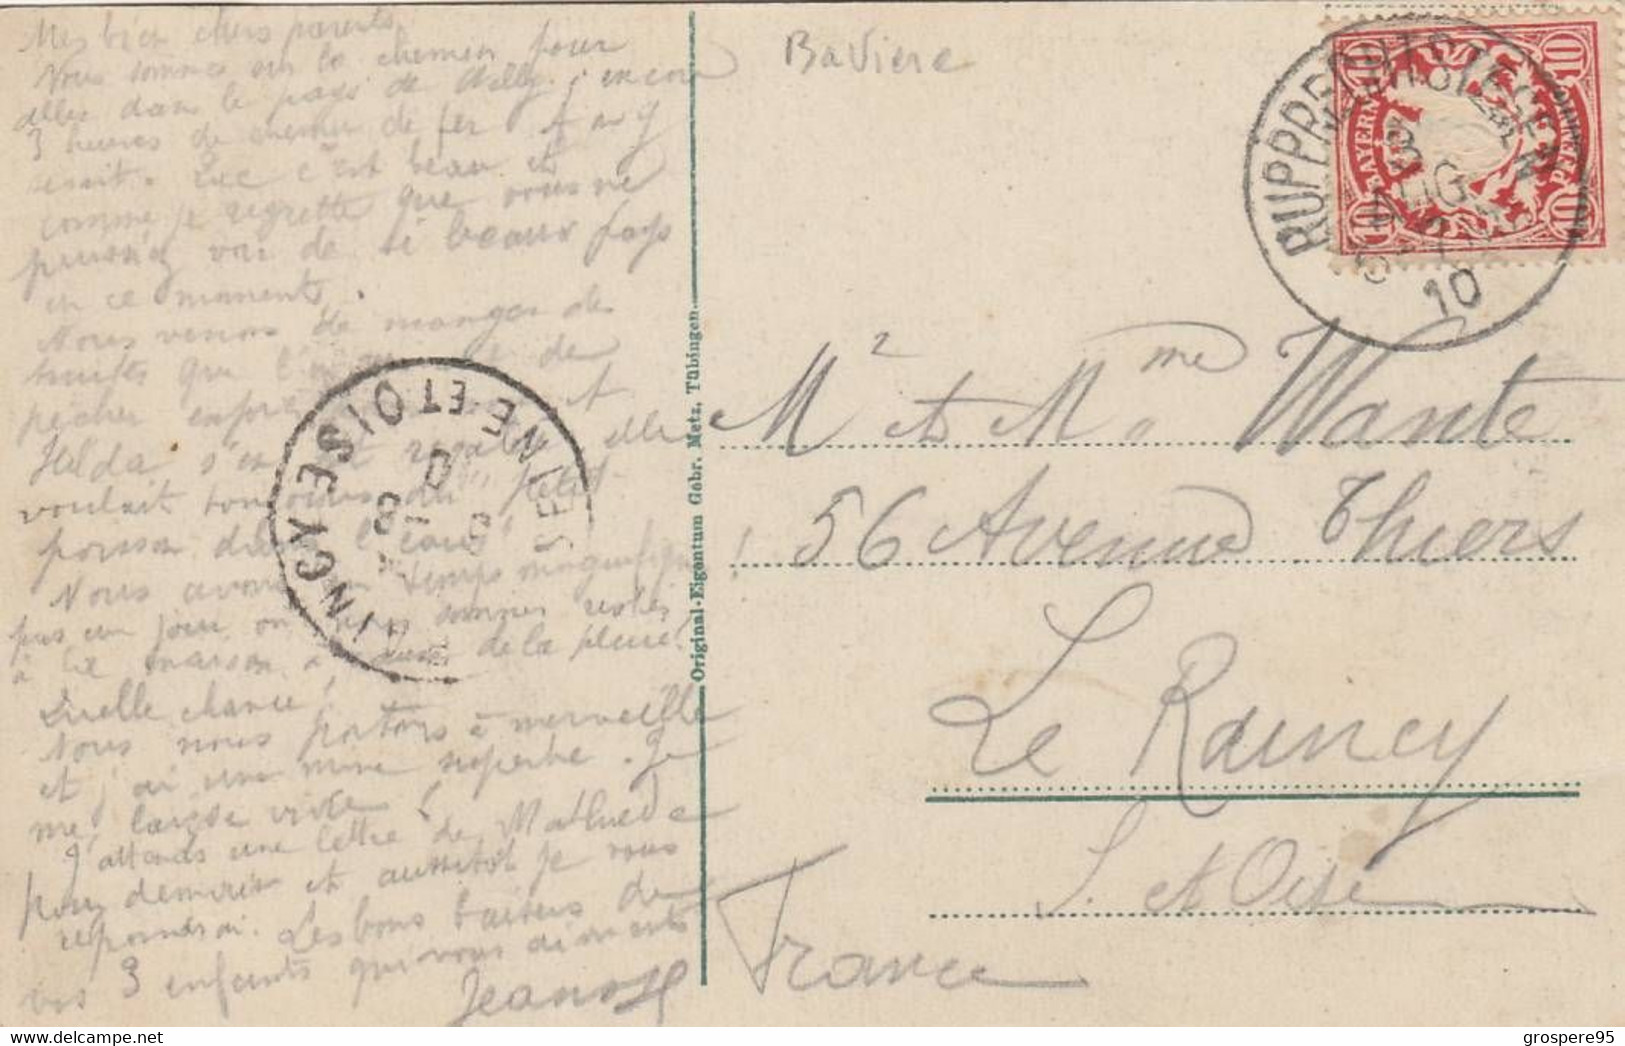 Mes bien chers parents,
Nous sommes sur le chemin pour
aller dans le pays de Willy, encore
3 heures de chemin de fer
c'est beau et
comme je regrette que vous ne
puissiez voir de si beaux pays
en ce moment.
Nous venons de manger des
truites que l'on de
pêcher
Hilda s'en est régalée, elle
voulait toujours du "petit
poisson dans l'eau" !
Nous avons un temps magnifique
pas un jour où nous sommes restés
à la maison à cause de la pluie !
Quelle chance !
Nous nous portons à merveille
et j'ai une mine superbe. Je
me laisse vivre !
J'attends une lettre de
pour demain et aussitôt je vous
répondrai. Les bons baisers de
vos 3 enfants qui vous aiment
Jeanne
Original-Eigentum Gebr. Metz, Tübingen.
Bavière
10 BAYERN 10 PFENNIG
RUPPRECHTSTEGEN
3 AUG
10
LE RAINCY SEINE-ET-OISE
Mr et Mme Wante
56 Avenue Thiers
Le Raincy
S. et Oise
France
grospere95